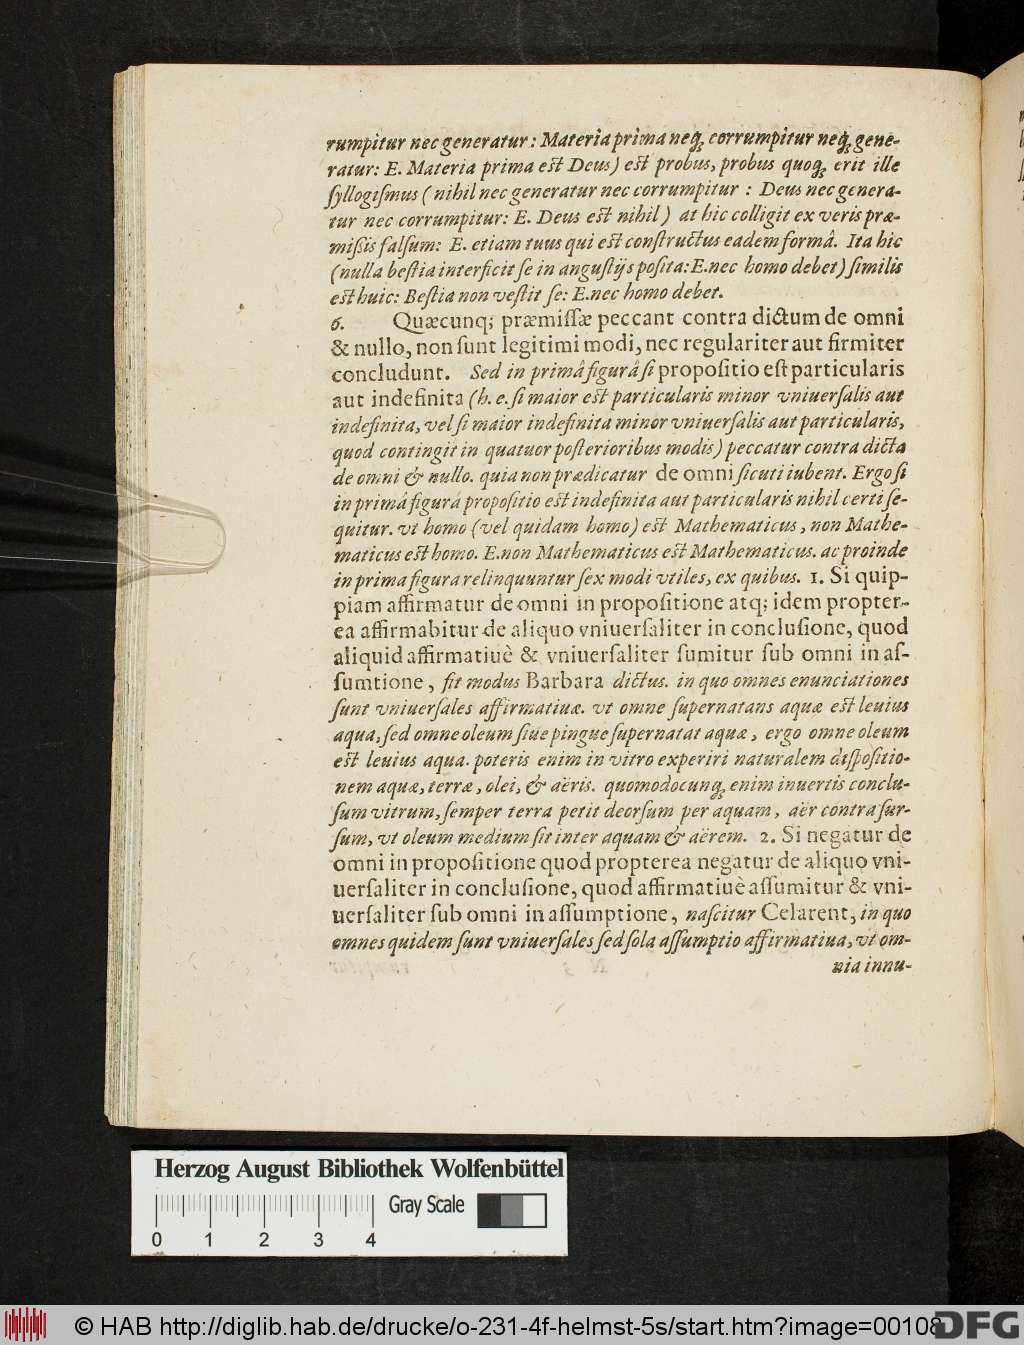 rumpitur nec generatur: Materia prima neq; corrumpitur neq; gene-
ratur: E. Materia prima est Deus) est probus, probus quoq; erit ille
ſyllogiſmus (nihil nec generatur nec corrumpitur: Deus nec genera-
tur nec corrumpitur: E. Deus est nihil) at hic colligit ex veris præ-
mißis falſum: E. etiam tuus qui est conſtructus eadem formâ. Ita hic
(nulla beſtia interficit ſe in anguſtijs poſita: E. nec homo debet) ſimilis
est huic: Beſtia non veſtit ſe: E. nec homo debet.
6. Quæcunq; præmiſſæ peccant contra dictum de omni
& nullo, non ſunt legitimi modi, nec regulariter aut firmiter
concludunt. Sed in primâ figurâ ſi propoſitio eſt particularis
aut indefinita (h. e. ſi maior est particularis minor vniuerſalis aut
indefinita, vel ſi maior indefinita minor vniuerſalis aut particularis,
quod contingit in quatuor poſterioribus modis) peccatur contra dicta
de omni & nullo. quia non prædicatur de omni ſicuti iubent. Ergo ſi
in primâ figurâ propoſitio est indefinita aut particularis nihil certi ſe-
quitur. vt homo (vel quidam homo) est Mathematicus, non Mathe-
maticus est homo. E. non Mathematicus est Mathematicus. ac proinde
in prima figura relinquuntur ſex modi vtiles, ex quibus. 1. Si quip-
piam affirmatur de omni in propoſitione atq; idem propter-
ea affirmabitur de aliquo vniuerſaliter in concluſione, quod
aliquid affirmatiuè & vniuerſaliter ſumitur ſub omni in aſ-
ſumtione, fit modus Barbara dictus. in quo omnes enunciationes
ſunt vniuerſales affirmatiuæ. vt omne ſupernatans aquæ est leuius
aqua, ſed omne oleum ſiue pingue ſupernatat aquæ, ergo omne oleum
est leuius aqua. poteris enim in vitro experiri naturalem diſpoſitio-
nem aquæ, terræ, olei, & aëris. quomodocunq; enim inuertis conclu-
ſum vitrum, ſemper terra petit deorſum per aquam, aër contra ſur-
ſum, vt oleum medium ſit inter aquam & aërem. 2. Si negatur de
omni in propoſitione quod propterea negatur de aliquo vni-
uerſaliter in concluſione, quod affirmatiuè aſſumitur & vni-
uerſaliter ſub omni in aſſumptione, naſcitur Celarent, in quo
omnes quidem ſunt vniuerſales ſed ſola aſſumptio affirmatiua, vt om-
nia innu-
Herzog August Bibliothek Wolfenbüttel
Gray Scale
0 1 2 3 4
© HAB http://diglib.hab.de/drucke/o-231-4f-helmst-5s/start.htm?image=00108
DFG